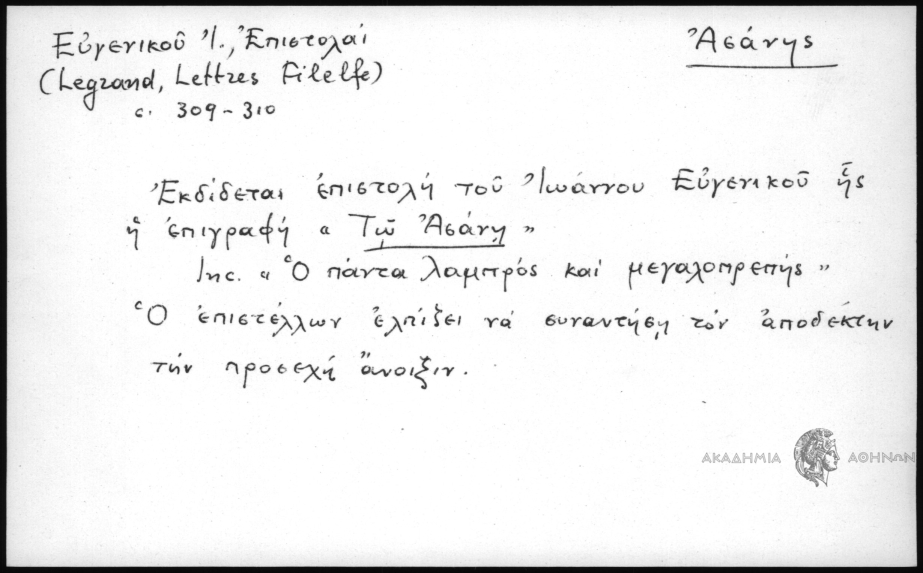 Εὐγενικοῦ Ἰ., Ἐπιστολαί
(Legrand, Lettres Filelfe)
σ. 309-310
Ἀσάνης
Ἐκδίδεται ἐπιστολή τοῦ Ἰωάννου Εὐγενικοῦ ἧς
ἡ ἐπιγραφή « Τῷ Ἀσάνῃ »
Inc. « Ὁ πάντα λαμπρός καί μεγαλοπρεπής »
Ὁ ἐπιστέλλων ἐλπίζει νά συναντήσῃ τόν ἀποδέκτην
τήν προσεχῆ ἄνοιξιν.
ΑΚΑΔΗΜΙΑ ΑΘΗΝΩΝ